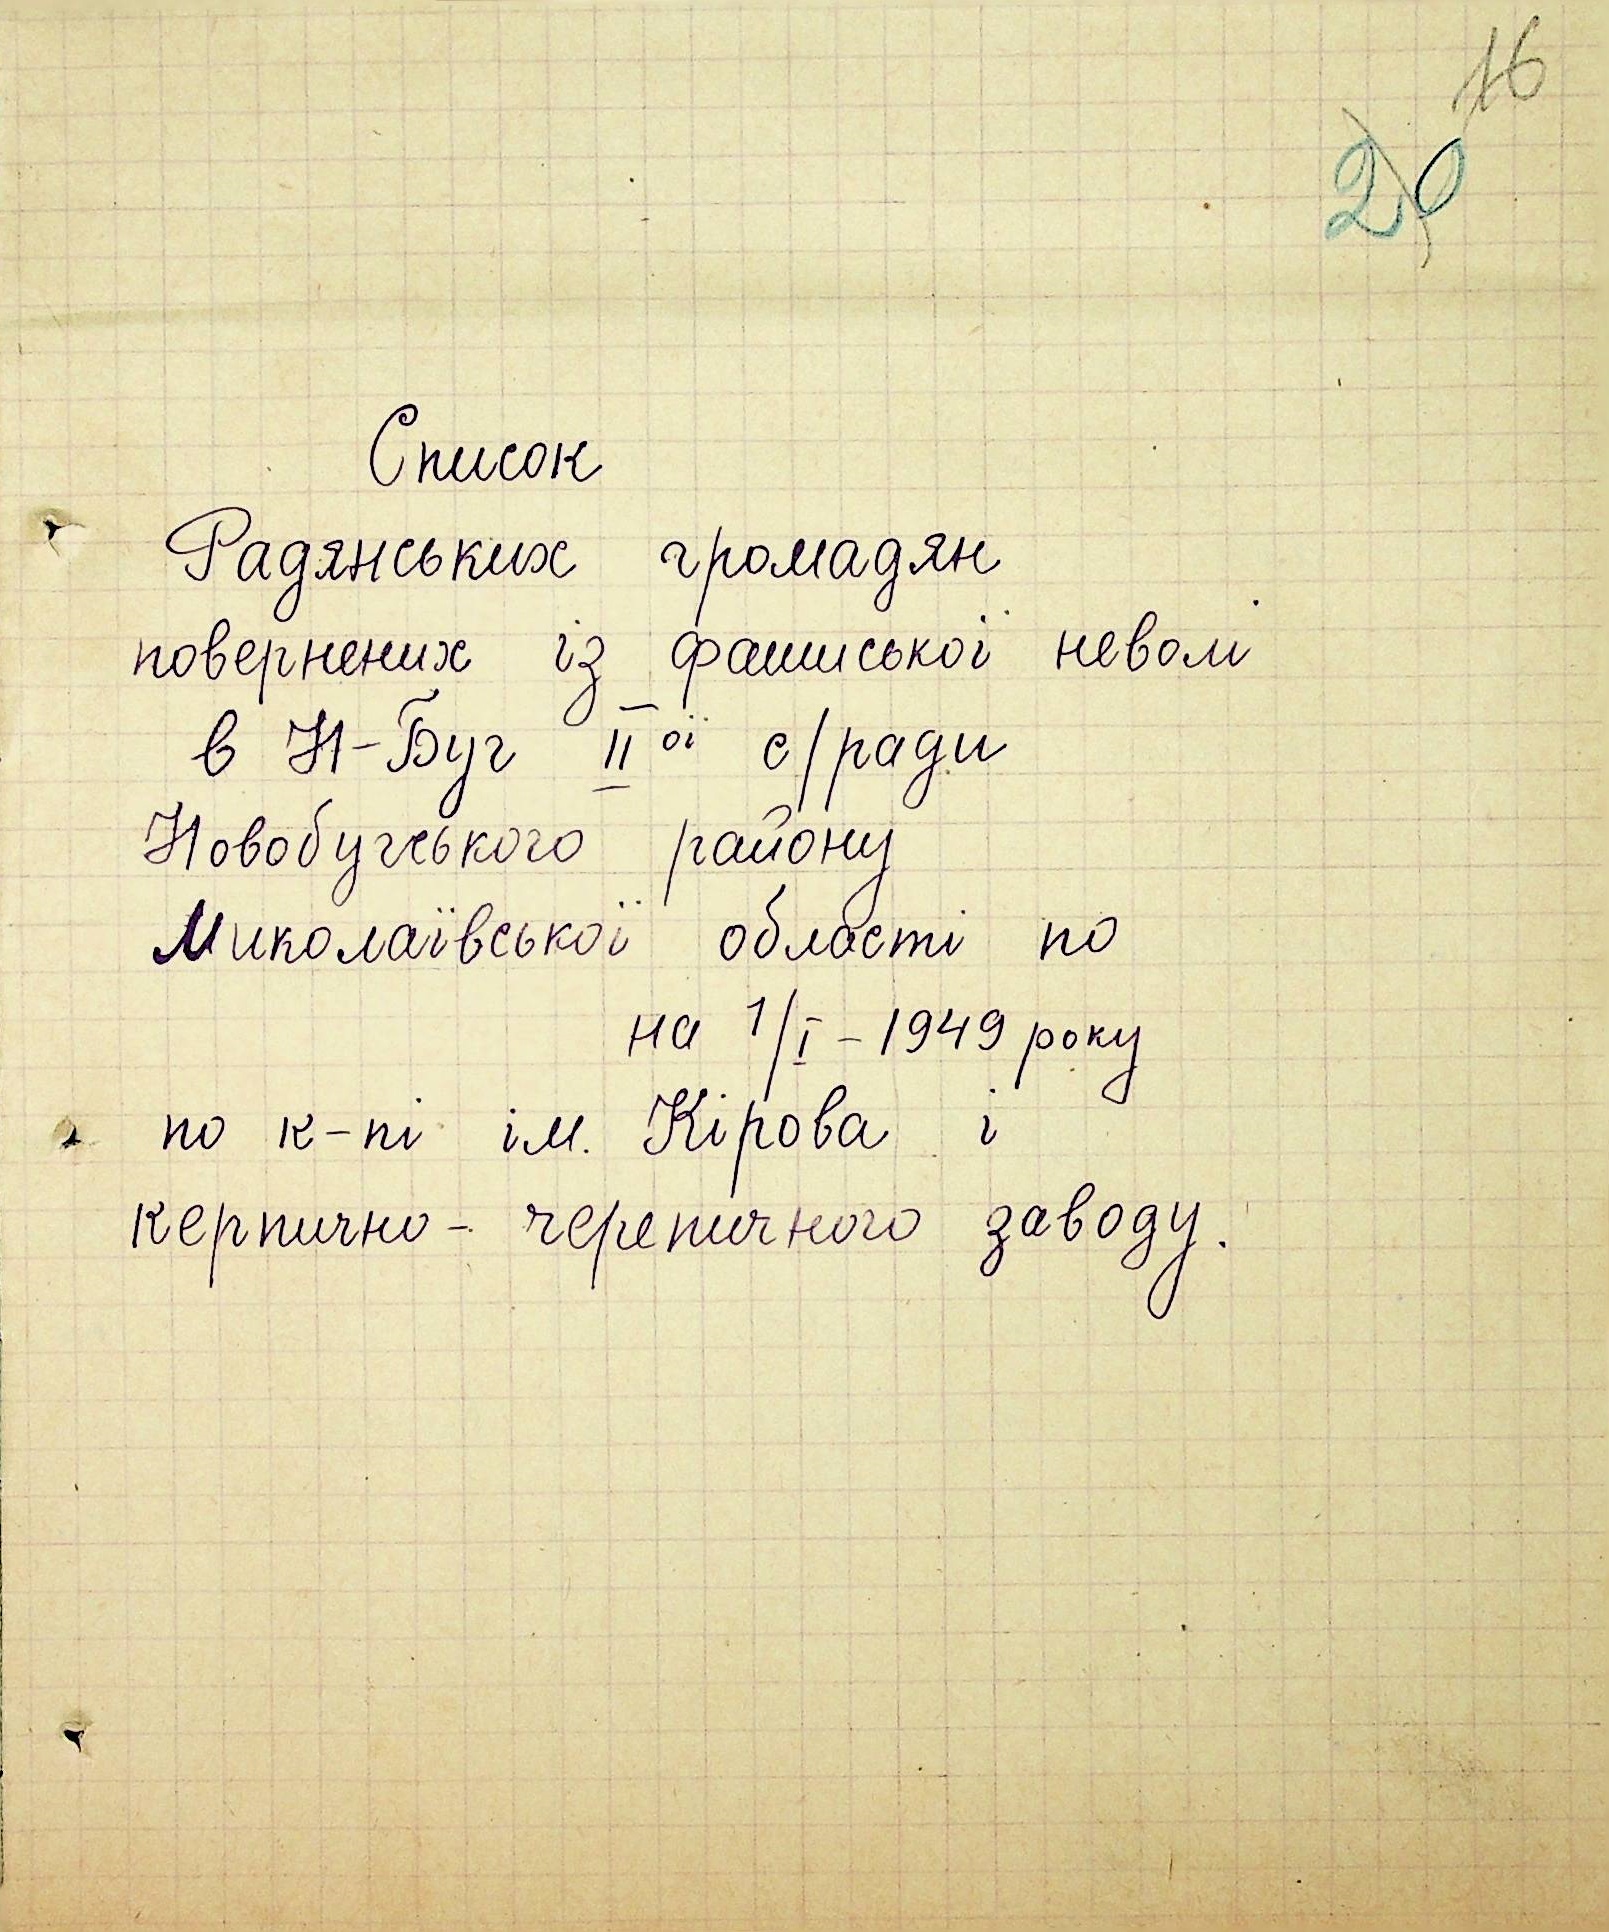 16
20
Список
Радянських громадян
повернених із фашиської неволі
в Н-Буг II ої с/ради
Новобугського району
Миколаївської області по
на 1/I - 1949 року
по к-пі ім. Кірова і
керпично - черепичного заводу.